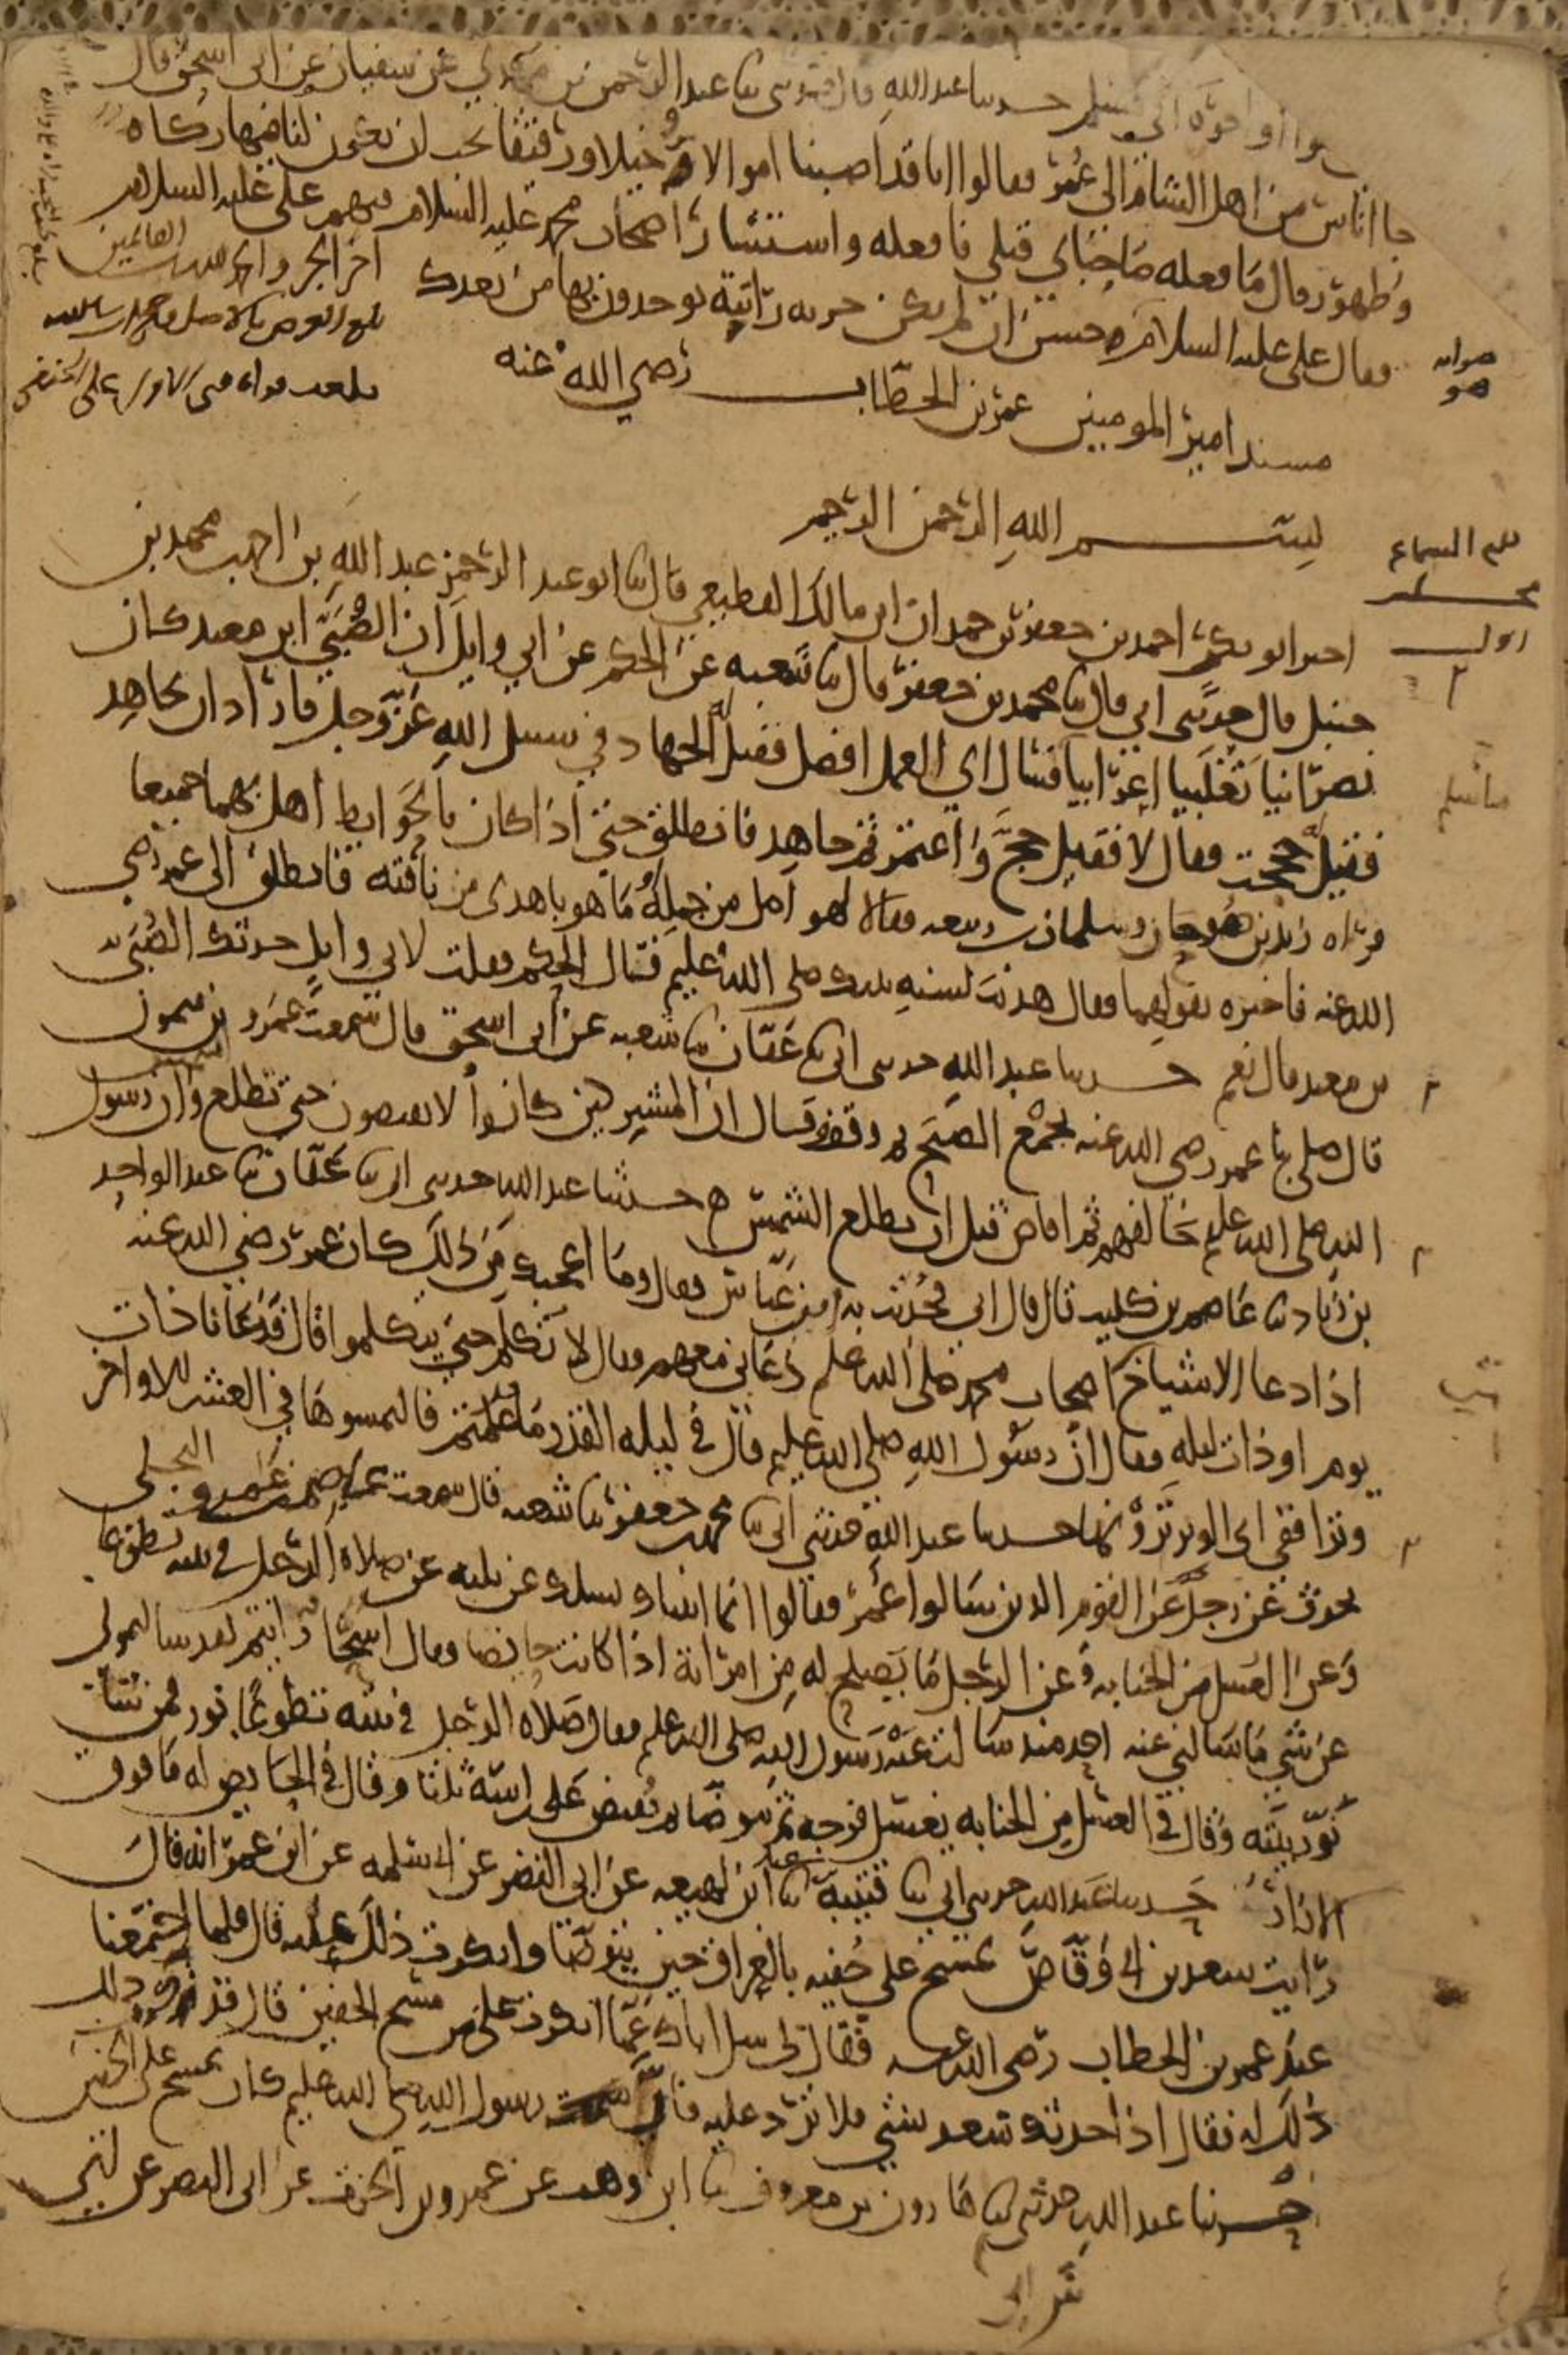 حدثنا عبد الله قال حدثني ابي ثنا عبد الرحمن بن مهدي عن سفيان عن ابي اسحق قال
جا اناس من اهل الشام الى عمر فقالوا انا قد اصبنا اموالا وخيلا ورقيقا نحب ان يكون لنا فيها زكاه
وطهور قال ما فعله صاحباي قبلي فافعله واستشار اصحاب محمد عليه السلام فيهم علي عليه السلام
فقال علي عليه السلام هو حسن ان لم يكن جزيه راتبة يوخذون بها من بعدك
اخر الجزو والحمد لله رب العالمين
صوابه
هو
مسند امير المومنين عمر بن الخطاب رضي الله عنه
بسم الله الرحمن الرحيم
اخبرنا ابو بكر احمد بن جعفر بن حمدان ابن مالك القطيعي قال ثنا ابو عبد الرحمن عبد الله بن احمد بن محمد بن
حنبل قال حدثني ابي قال ثنا محمد بن جعفر قال ثنا شعبه عن الحكم عن ابي وايل ان الصبي ابن معبد كان
نصرانيا تغلبيا اعرابيا فسال اي العمل افضل فقيل الجهاد في سبيل الله عز وجل فاراد ان يجاهد
فقيل حججت فقال لا فقيل حج واعتمر ثم جاهد فانطلق حتى اذا كان بالحوابط اهل بهما جميعا
فراه زيد بن صوحان وسلمان بن ربيعه فقالا لهو اضل من جمله او ما هو باهدى من ناقته فانطلق الى عمر رضي
الله عنه فاخبره بقولهما فقال هديت لسنه نبيك صلى الله عليه فقال الحكم فقلت لابي وايل حدثك الصبي
بن معبد قال نعم حدثنا عبد الله حدثني ابي ثنا عفان ثنا شعبه عن ابي اسحق قال سمعت عمرو بن ميمون
قال صلى بنا عمر رضي الله عنه بجمع الصبح ثم وقف وقال ان المشركين كانوا لا يفيضون حتى تطلع الشمس وان رسول
الله صلى الله عليه خالفهم ثم افاض قبل ان تطلع الشمس حدثنا عبد الله حدثني ابي ثنا عفان ثنا عبد الواحد
بن زياد ثنا عاصم بن كليب قال قال ابي فحدثت به ابن عباس فقال وما اعجبك من ذلك كان عمر رضي الله عنه
اذا دعا الاشياخ من اصحاب محمد صلى الله عليه دعاني معهم وقال لا تكلم حتى يتكلموا قال فدعانا ذات
يوم او ذات ليله فقال ان رسول الله صلى الله عليه قال في ليله القدر ما قد علمتم فالتمسوها في العشر الاواخر
وترا ففي اي الوتر ترونها حدثنا عبد الله حدثني ابي ثنا محمد بن جعفر ثنا شعبه قال سمعت عاصم بن عمرو البجلي
يحدث عن رجل عن القوم الذين سالوا عمر فقالوا انما اتيناك نسلك عن ثلثه عن صلاه الرجل في بيته تطوعا
وعن الغسل من الجنابه وعن الرجل ما يصلح له من امراته اذا كانت حايضا فقال اسحار انتم لقد سالتموني
عن شي ما سالني عنه احد منذ سالت عنه رسول الله صلى الله عليه فقال صلاه الرجل في بيته تطوعا نور فمن شا
نور بيته وقال في الغسل من الجنابه يغسل فرجه ثم يتوضا ثم يفيض على راسه ثلثا وقال في الحايض له ما فوق
الازار حدثنا عبد الله حدثني ابي ثنا قتيبة ثنا ابن لهيعه عن ابي النضر عن ابي سلمه عن ابن عمر انه قال
رايت سعد بن ابي وقاص يمسح على خفيه بالعراق حين يتوضا فانكرت ذلك عليه قال فلما اجتمعنا
عند عمر بن الخطاب رضي الله عنه فقال لي سل اباك عما انكرت علي من مسح الخفين قال فذكرت
ذلك له فقال اذا حدثك سعد بشي فلا ترد عليه فان رسول الله صلى الله عليه كان يمسح على الخفين
حدثنا عبد الله حدثني ابي ثنا هارون بن معروف ثنا ابن وهب عن عمرو بن الحرث عن ابي النضر عن ابي